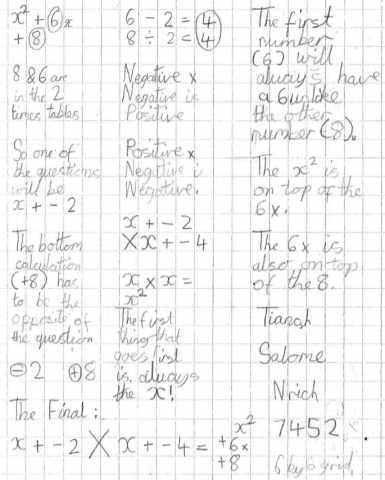 x² + 6x
+ 8
8 & 6 are
in the 2
times tables
So one of
the questions
will be
x + - 2
The bottom
calculation
(+8) has
to be the
opposite of
the question
-2 +8
6 - 2 = 4
8 ÷ 2 = 4
Negative x
Negative is
Positive
Positive x
Negative i
Negative.
x + - 2
X x + - 4
x x x =
x²
The first
thing that
goes first
is always
the x!
The first
number
(6) will
always have
a 6 unlike
the other
number (8).
The x² is
on top of the
6x.
The 6x is
also on top
of the 8.
Tianah
Salome
Nrich
7452
6 by 6 grid.
The Final :
x + - 2 X x + - 4 = x²
+6x
+8